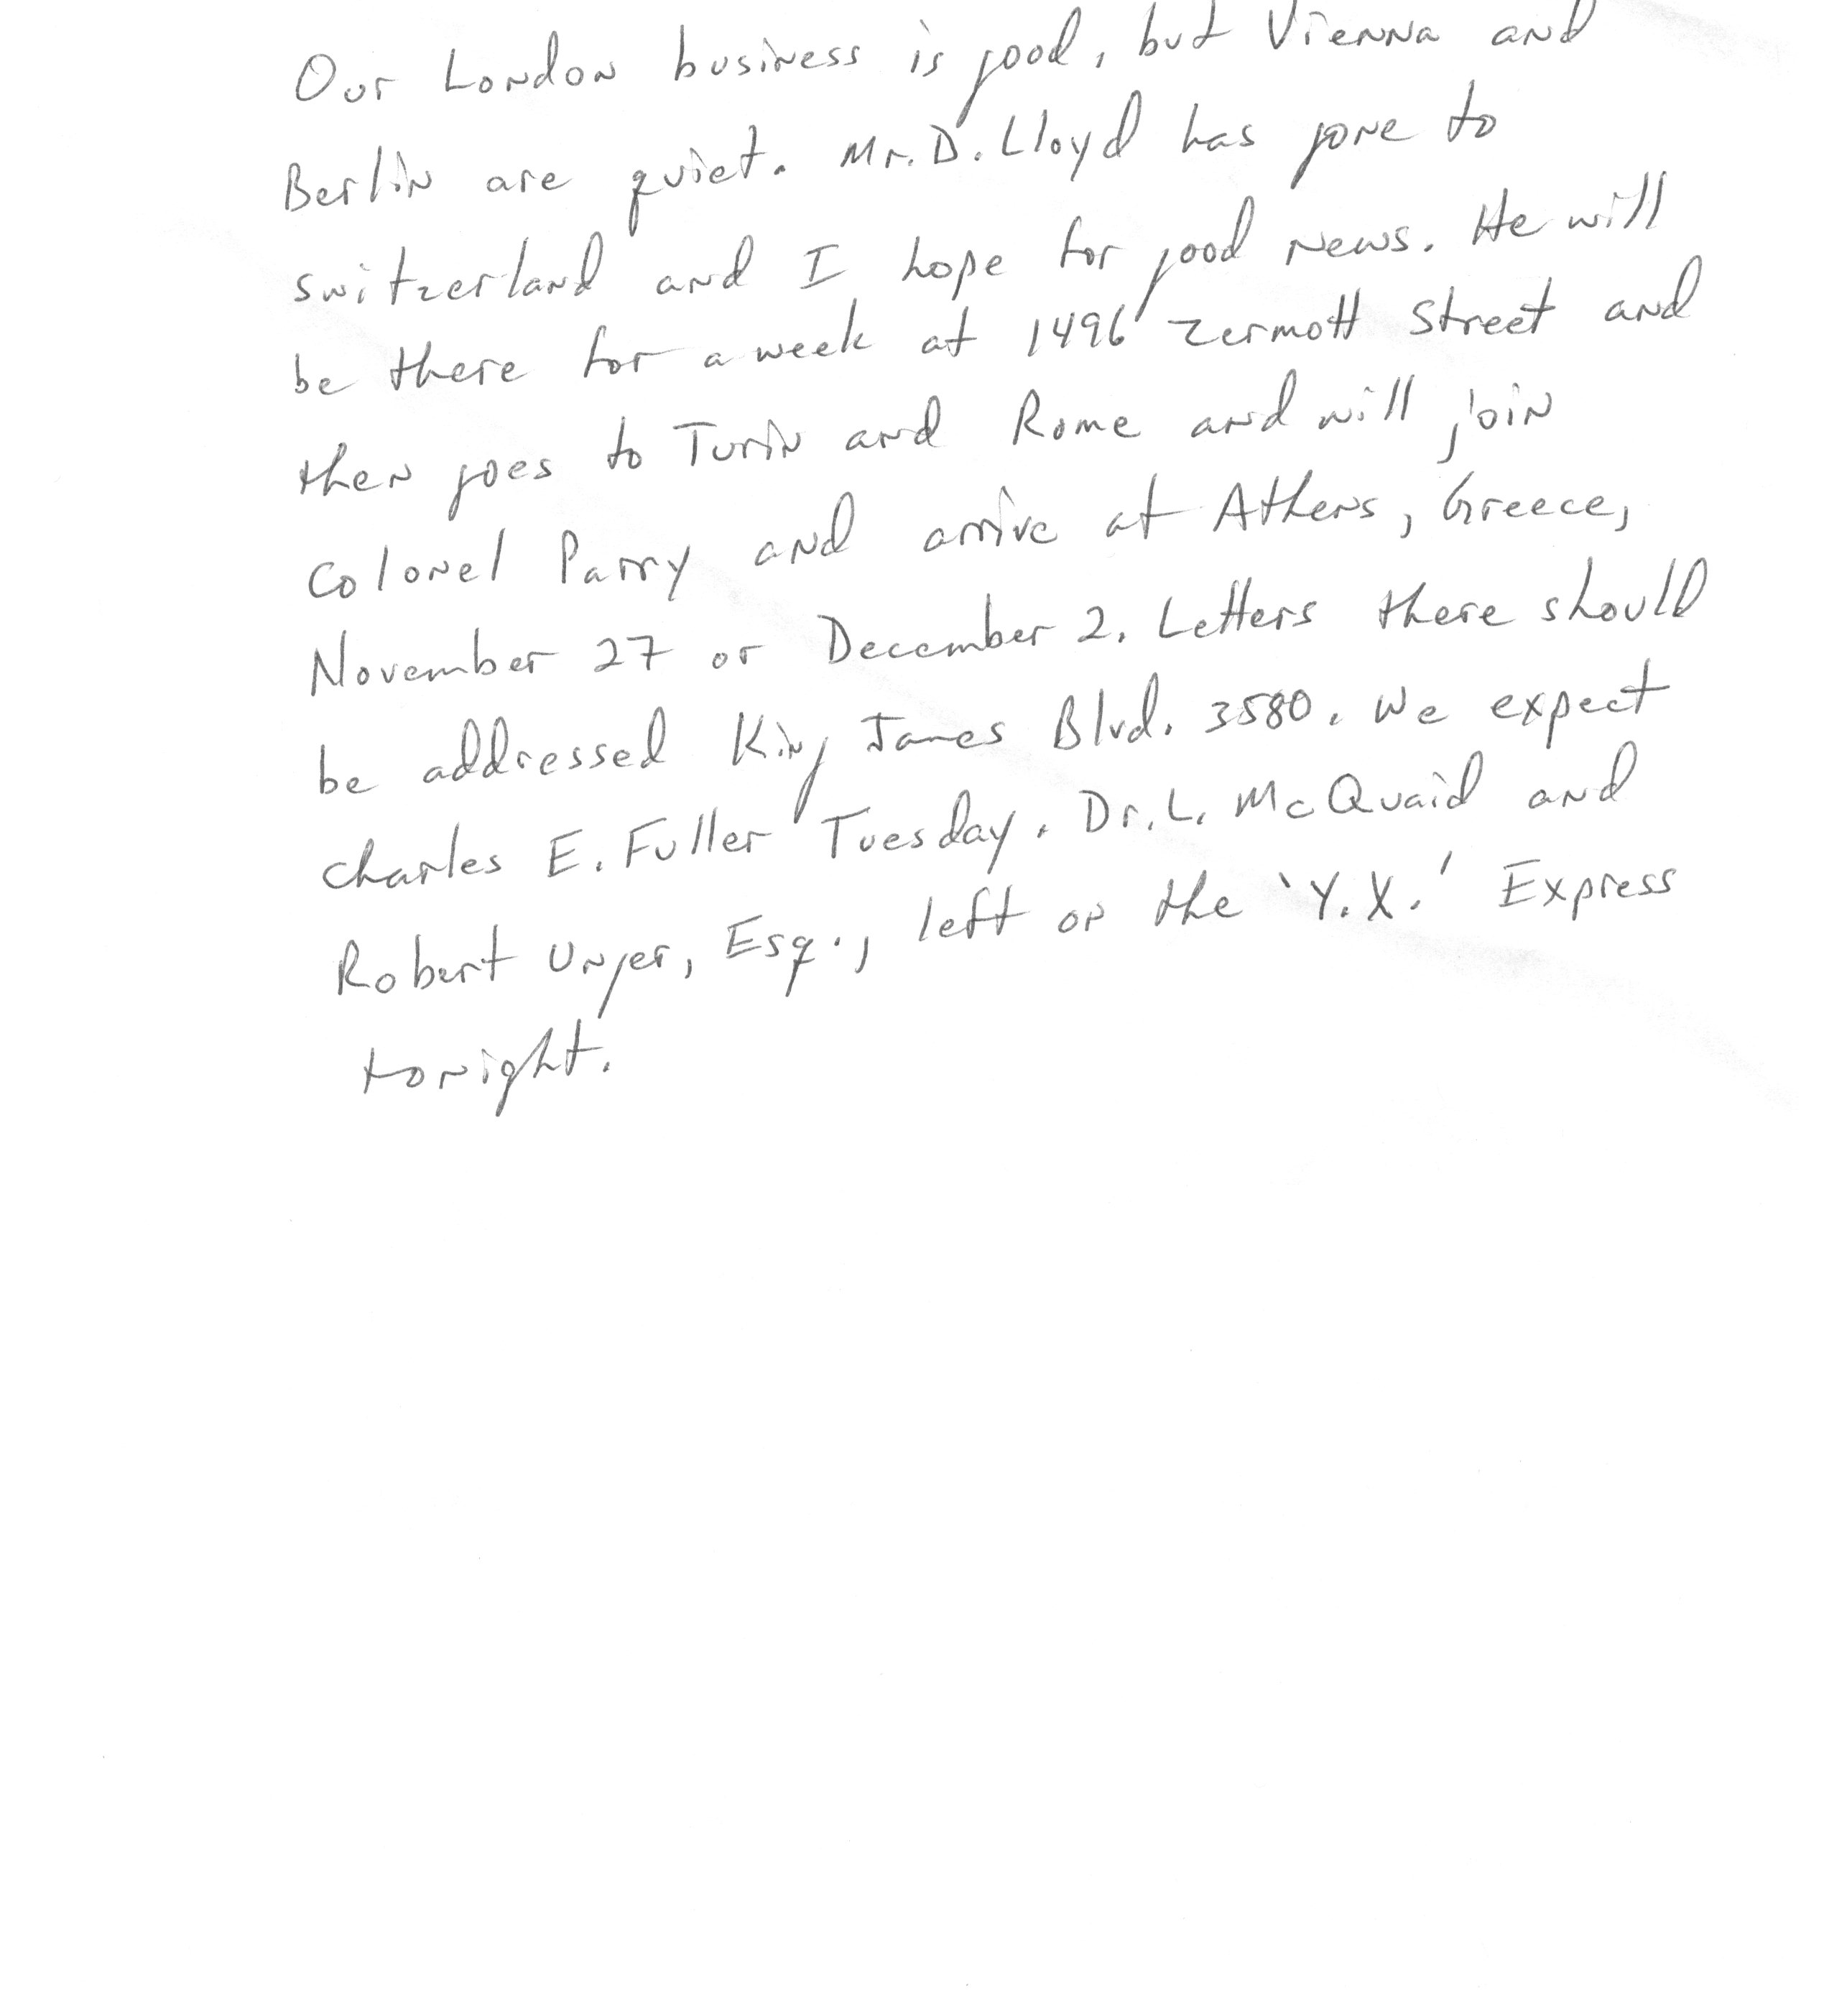 Our London business is good, but Vienna and
Berlin are quiet. Mr. D. Lloyd has gone to
switzerland and I hope for good news. He will
be there for a week at 1496 Zermott Street and
then goes to Turin and Rome and will join
Colonel Parry and arrive at Athens, Greece,
November 27 or December 2. Letters there should
be addressed King James Blvd. 3580. We expect
Charles E. Fuller Tuesday. Dr. L. McQuaid and
Robert Unger, Esq., left on the 'Y.X.' Express
tonight.